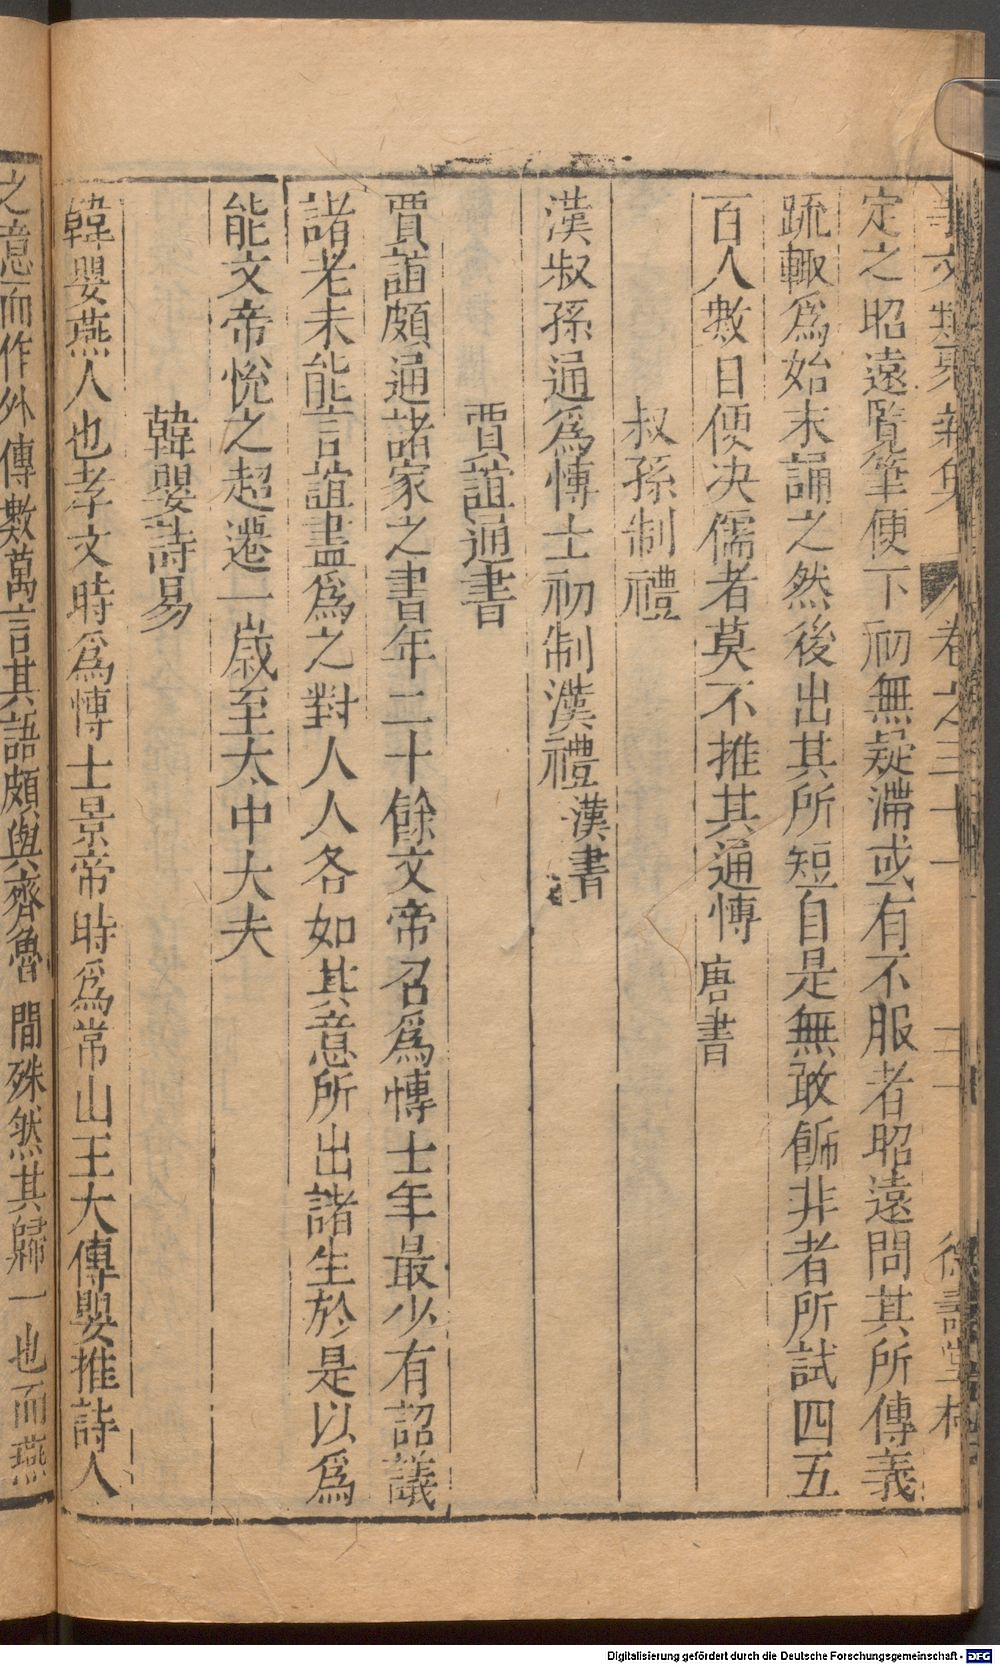 事文類聚新集 卷之三十一 二一 德壽堂梓
定之昭遠覽筆便下初無疑滯或有不服者昭遠問其所傳義
疏輙爲始末誦之然後出其所短自是無敢餙非者所試四五
百人數日便决儒者莫不推其通愽 唐書
叔孫制禮
漢叔孫通爲愽士初制漢禮 漢書
賈誼通書
賈誼頗通諸家之書年二十餘文帝召爲愽士年最少有詔議
諸老未能言誼盡爲之對人人各如其意所出諸生於是以爲
能文帝悅之超遷一歲至太中大夫
韓嬰詩易
韓嬰燕人也孝文時爲愽士景帝時爲常山王大傳嬰推詩人
之意而作外傳數萬言其語頗與齊魯間殊然其歸一也而燕
Digitalisierung gefördert durch die Deutsche Forschungsgemeinschaft - DFG